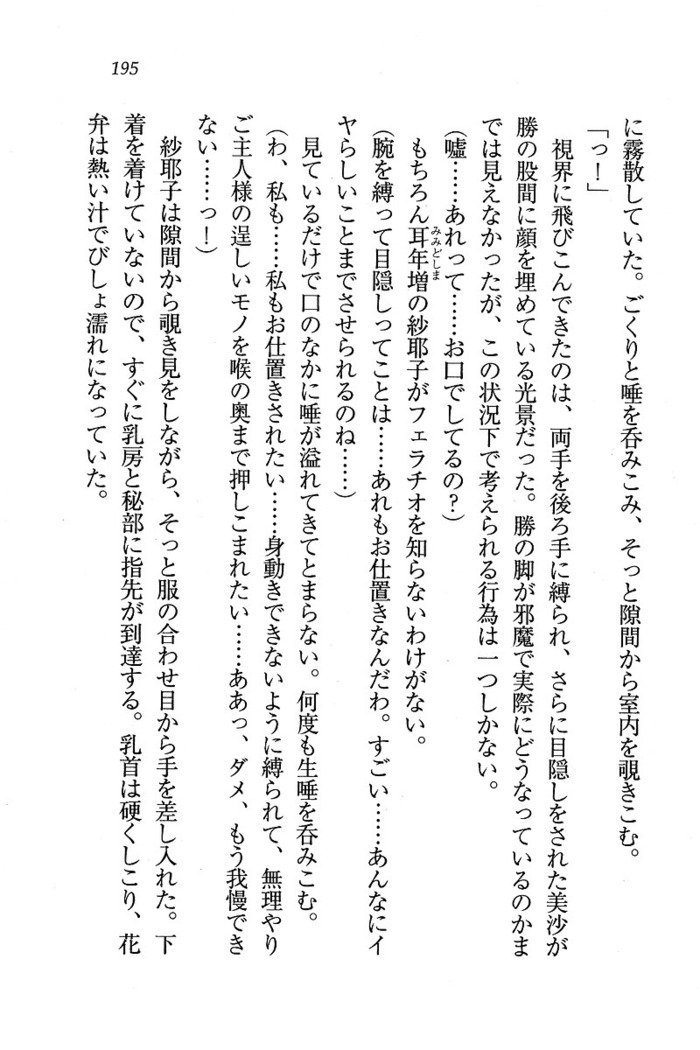 195
に霧散していた。ごくりと唾を呑みこみ、そっと隙間から室内を覗きこむ。
「っ！」
視界に飛びこんできたのは、両手を後ろ手に縛られ、さらに目隠しをされた美沙が
勝の股間に顔を埋めている光景だった。勝の脚が邪魔で実際にどうなっているのかま
では見えなかったが、この状況下で考えられる行為は一つしかない。
（嘘……あれって……お口でしてるの？）
もちろん耳年増(みみどしま)の紗耶子がフェラチオを知らないわけがない。
（腕を縛って目隠しってことは……あれもお仕置きなんだわ。すごい……あんなにイ
ヤらしいことまでさせられるのね……）
見ているだけで口のなかに唾が溢れてきてとまらない。何度も生唾を呑みこむ。
（わ、私も……私もお仕置きされたい……身動きできないように縛られて、無理やり
ご主人様の逞しいモノを喉の奥まで押しこまれたい……ああっ、ダメ、もう我慢でき
ない……っ！）
紗耶子は隙間から覗き見をしながら、そっと服の合わせ目から手を差し入れた。下
着を着けていないので、すぐに乳房と秘部に指先が到達する。乳首は硬くしこり、花
弁は熱い汁でびしょ濡れになっていた。